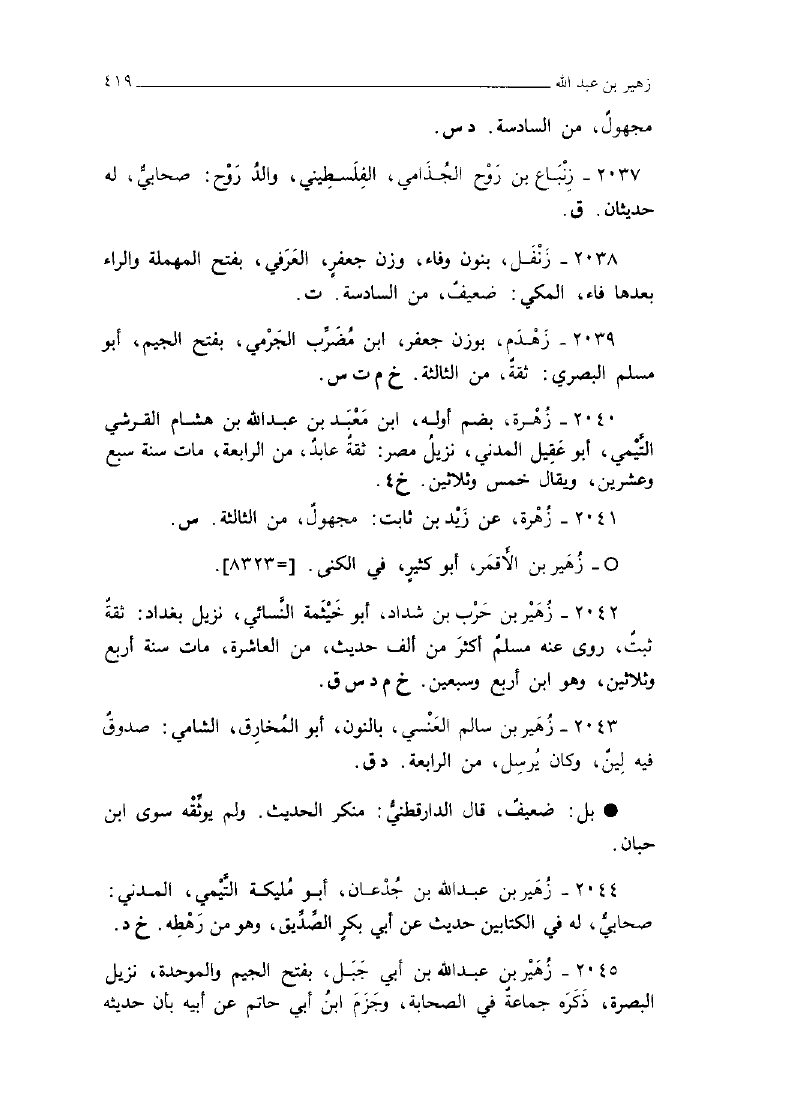 زهير بن عبد الله ٤١٩
مجهولٌ، من السادسة. د س.
٢٠٣٧ ـ زِنْبَاع بن رَوْح الجُذَامي، الفِلَسطِيني، والدُ رَوْح: صحابيٌّ، له
حديثان. ق.
٢٠٣٨ ـ زَنْفَل، بنون وفاء، وزن جعفرٍ، العَرَفي، بفتح المهملة والراء
بعدها فاء، المكي: ضعيفٌ، من السادسة. ت.
٢٠٣٩ ـ زَهْدَم، بوزن جعفر، ابن مُضَرِّب الجَرْمي، بفتح الجيم، أبو
مسلم البصري: ثقةٌ، من الثالثة. خ م ت س.
٢٠٤٠ ـ زُهْرة، بضم أوله، ابن مَعْبَد بن عبدالله بن هشام القرشي
التَّيْمي، أبو عَقِيل المدني، نزيلُ مصر: ثقةٌ عابدٌ، من الرابعة، مات سنة سبع
وعشرين، ويقال خمس وثلاثين. خ ٤.
٢٠٤١ ـ زُهْرة، عن زَيْد بن ثابت: مجهولٌ، من الثالثة. س.
○ ـ زُهَير بن الأَقمَر، أبو كثيرٍ، في الكنى. [=٨٣٢٣].
٢٠٤٢ ـ زُهَيْر بن حَرْب بن شداد، أبو خَيْثَمة النَّسائي، نزيل بغداد: ثقةٌ
ثبتٌ، روى عنه مسلمٌ أكثرَ من ألف حديث، من العاشرة، مات سنة أربع
وثلاثين، وهو ابن أربع وسبعين. خ م د س ق.
٢٠٤٣ ـ زُهَير بن سالم العَنْسي، بالنون، أبو المُخارِق، الشامي: صدوقٌ
فيه لِينٌ، وكان يُرسِل، من الرابعة. د ق.
● بل: ضعيفٌ، قال الدارقطنيُّ: منكر الحديث. ولم يوثِّقْه سوى ابن
حبان.
٢٠٤٤ ـ زُهَير بن عبدالله بن جُدْعان، أبو مُليكة التَّيْمي، المدني:
صحابيٌّ، له في الكتابين حديث عن أبي بكرٍ الصِّدِّيق، وهو من رَهْطِه. خ د.
٢٠٤٥ ـ زُهَيْر بن عبدالله بن أبي جَبَل، بفتح الجيم والموحدة، نزيل
البصرة، ذَكَرَه جماعةٌ في الصحابة، وجَزَمَ ابنُ أبي حاتم عن أبيه بأن حديثه